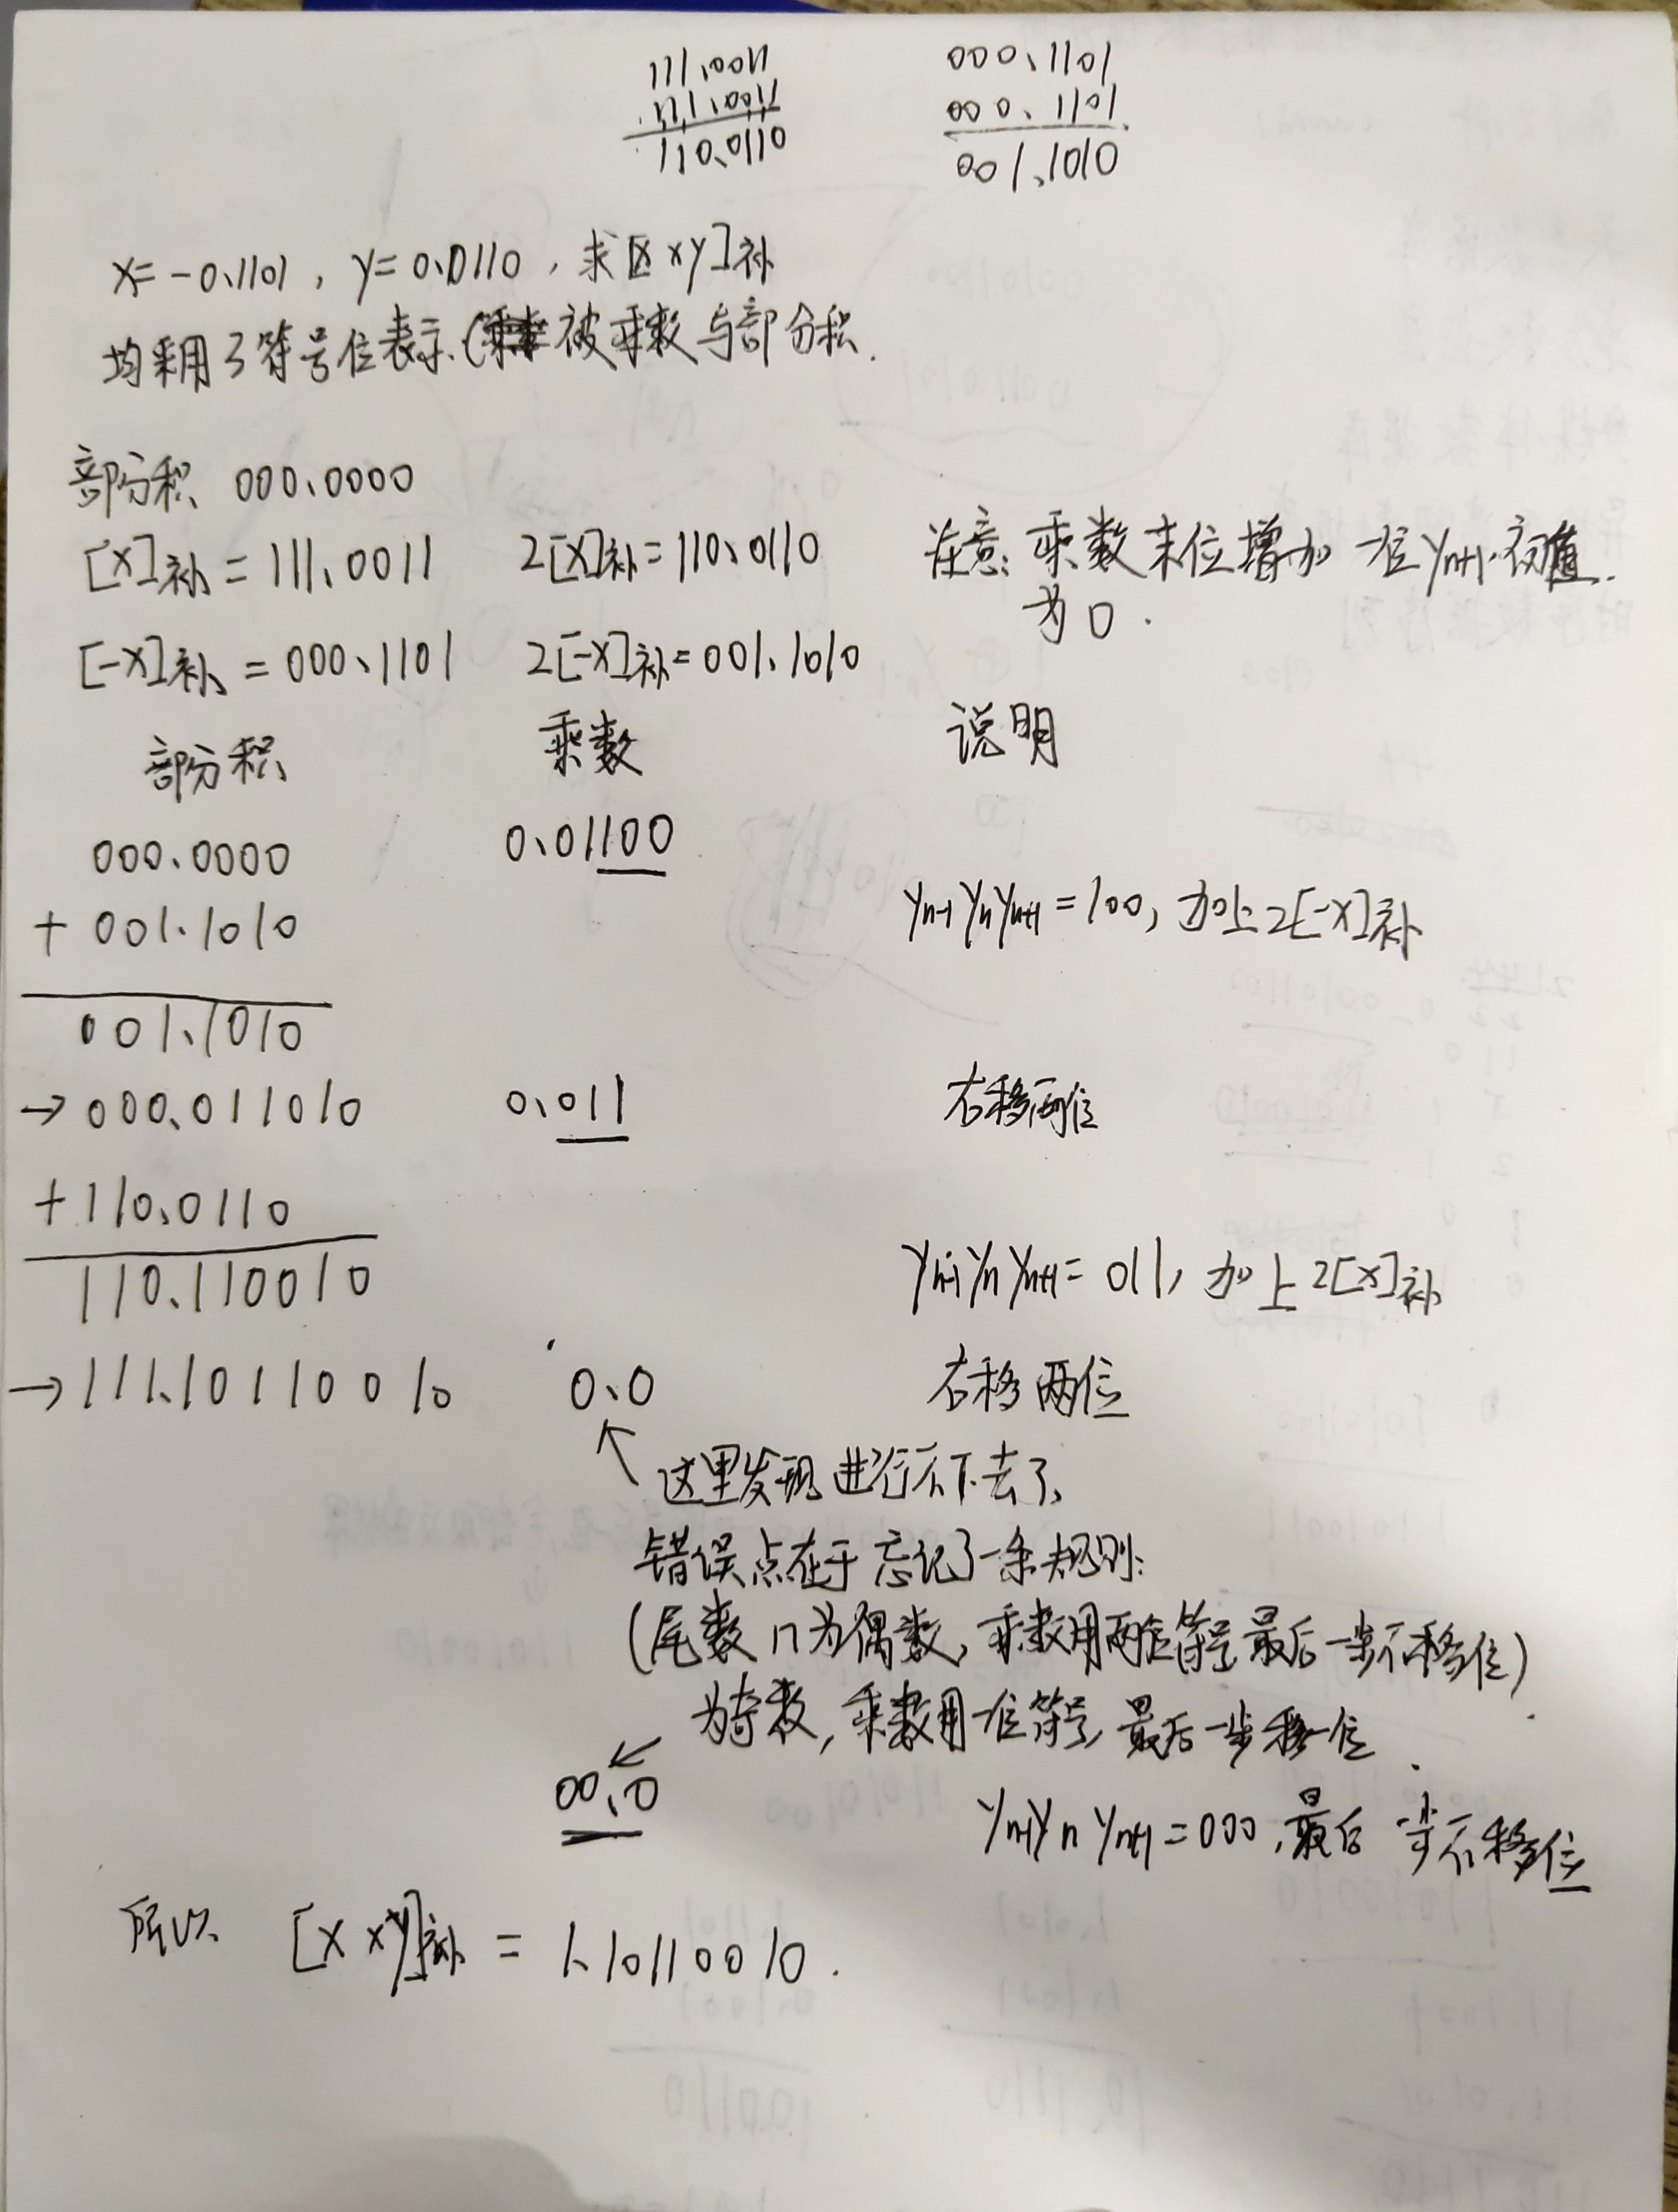 111.0011 000.1101
111.0011 000.1101
110.0110 001.1010
x=-0.1101, y=0.0110, 求[x×y]补
均采用3符号位表示(被乘数与部分积.
部分积 000.0000
[x]补=111.0011 2[x]补=110.0110 注意:乘数末位增加一位yn+1.初值
为0.
[-x]补=000.1101 2[-x]补=001.1010
部分积 乘数 说明
000.0000 0.01100
+ 001.1010 yn-1ynyn+1=100, 加上2[-x]补
001.1010
→000.011010 0.011 右移两位
+110.0110
110.110010 yn-1ynyn+1=011, 加上2[x]补
→111.10110010 0.0 右移两位
↑这里发现进行不下去了,
错误点在于忘记了一条规则:
(尾数n为偶数,乘数用两位符号最后一步不移位)
为奇数,乘数用一位符号,最后一步移一位
00.0 yn-1ynyn+1=000,最后一步不移位
所以 [x×y]补=1.10110010.